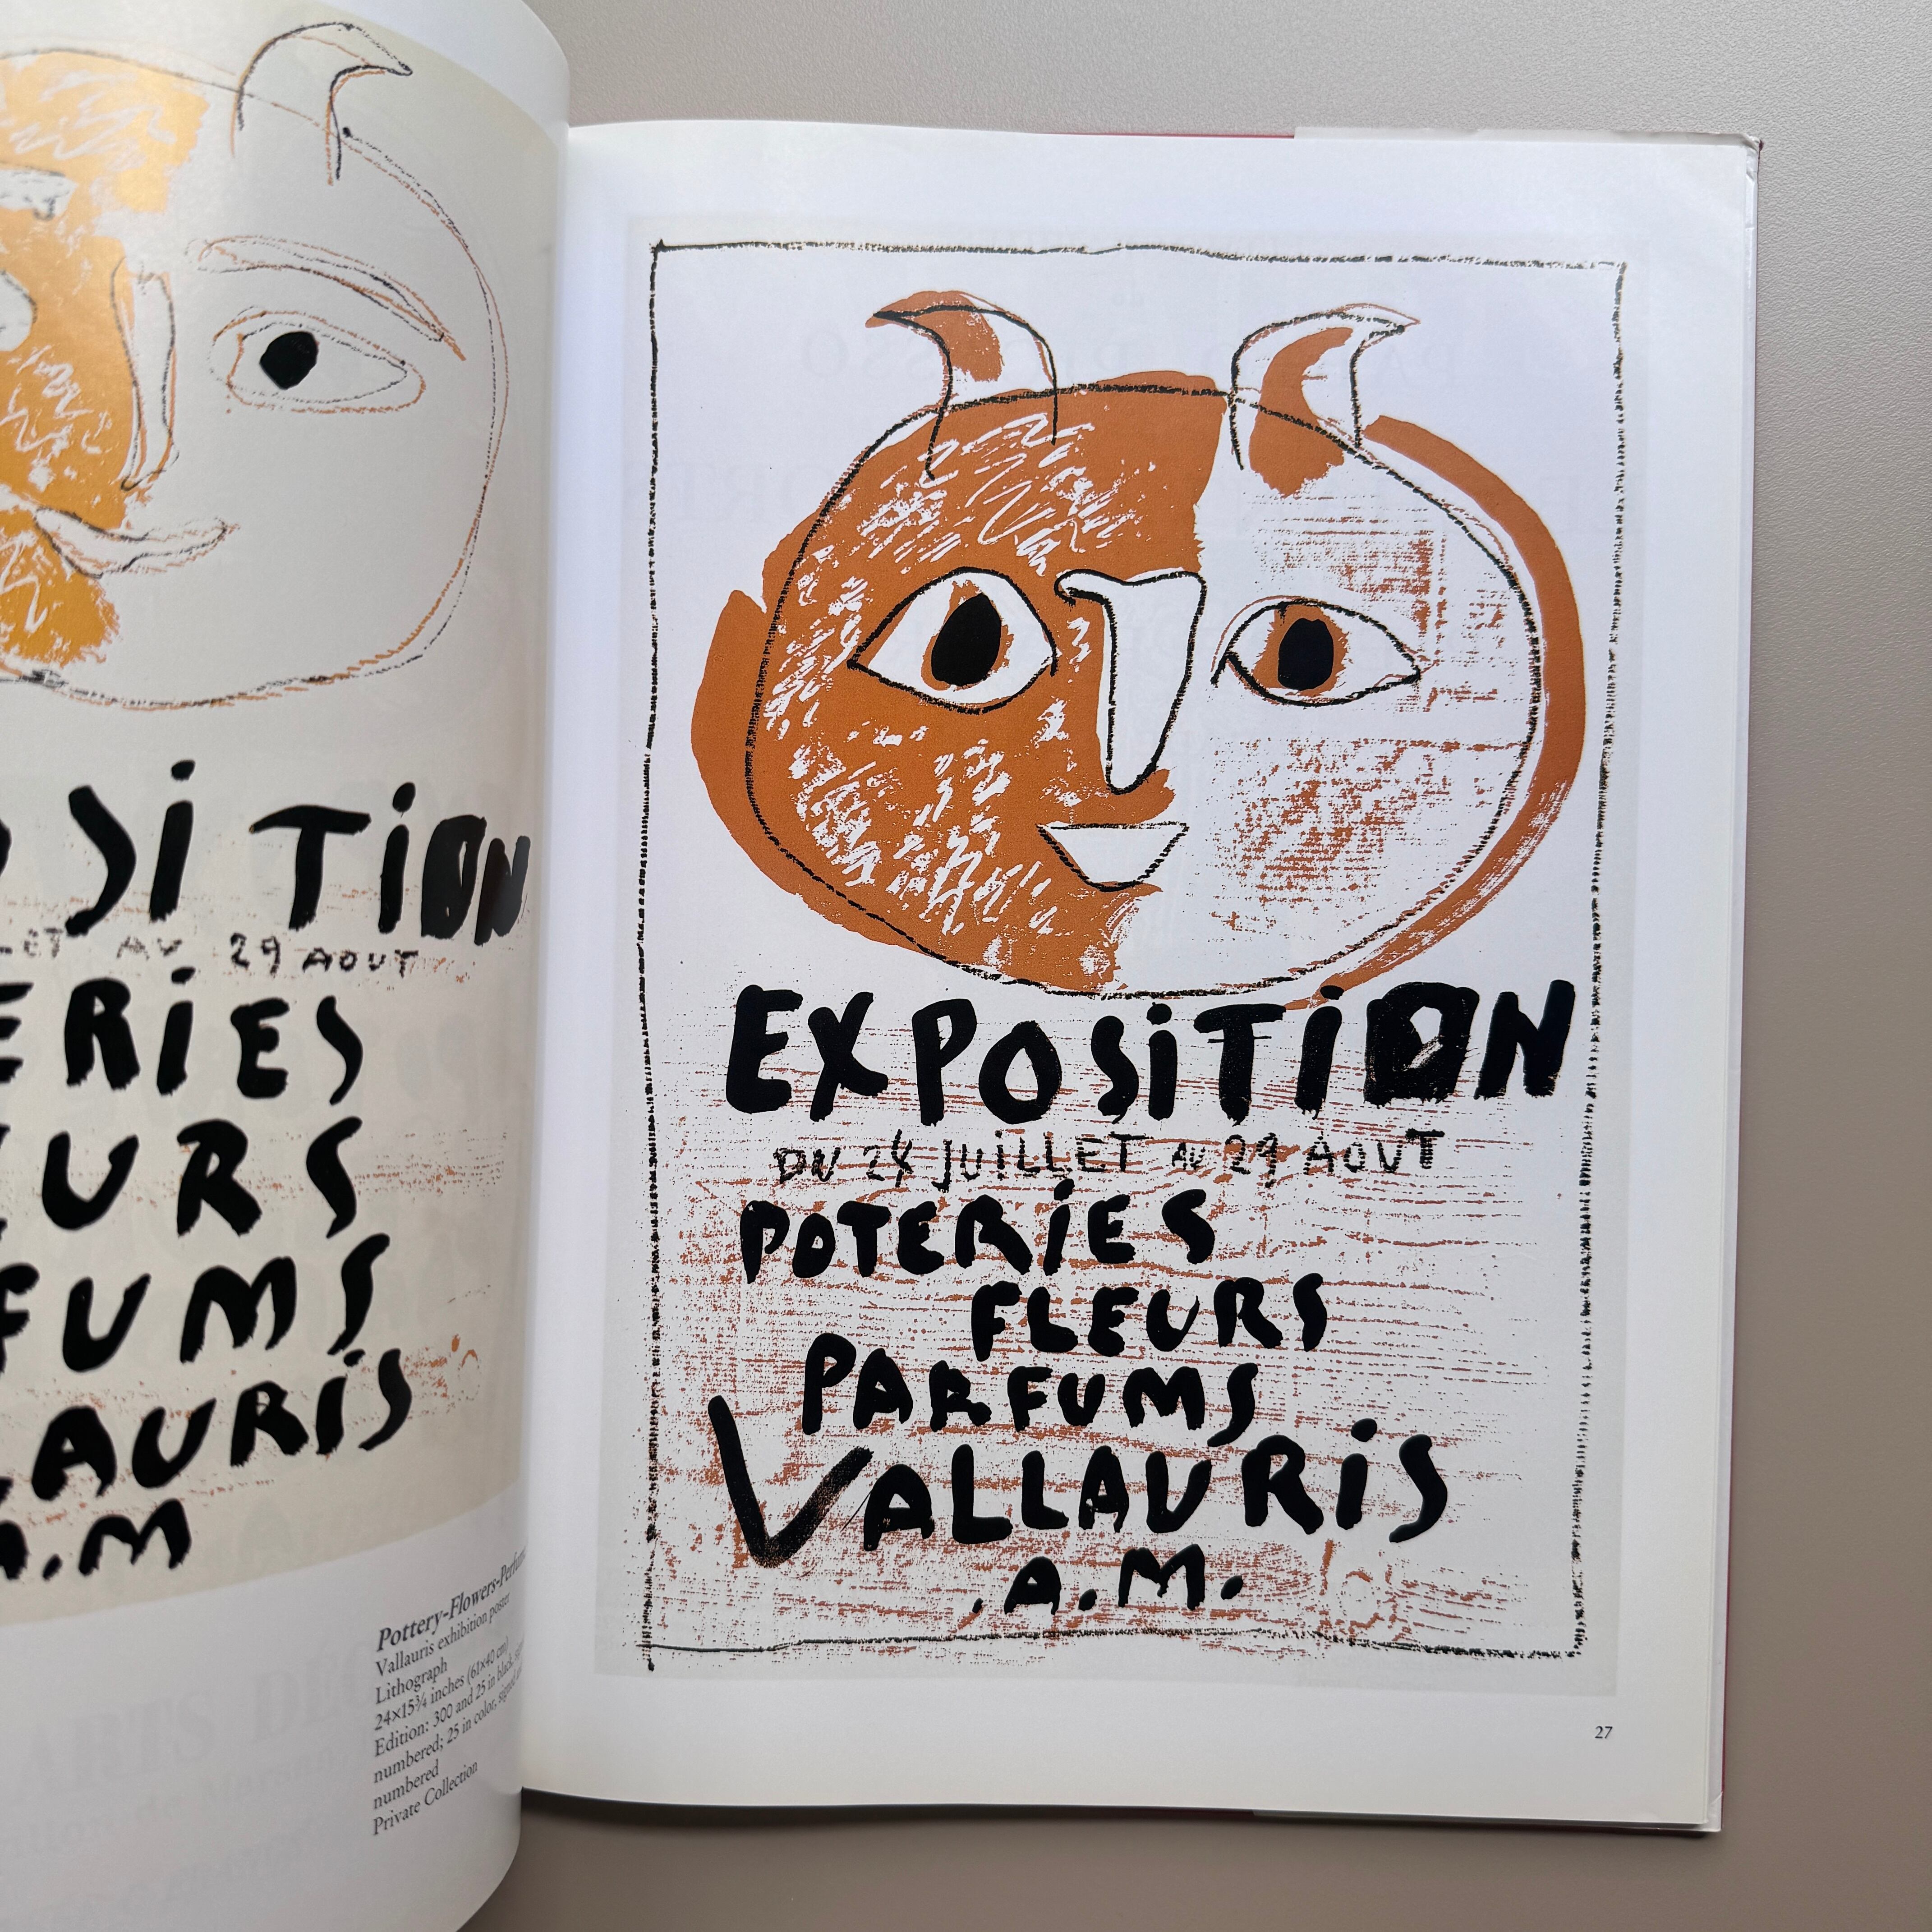 SITION
LET AU 29 AOUT
ERIES
URS
FUMS
LAURIS
A.M
Pottery-Flowers-Perfume
Vallauris exhibition poster
Lithograph
24×15¾ inches (61×40 cm)
Edition: 300 and 25 in black,
numbered; 25 in color, signed
numbered
Private Collection
EXPOSITION
DU 24 JUILLET AU 29 AOUT
POTERIES
FLEURS
PARFUMS
VALLAURIS
.A.M.
27